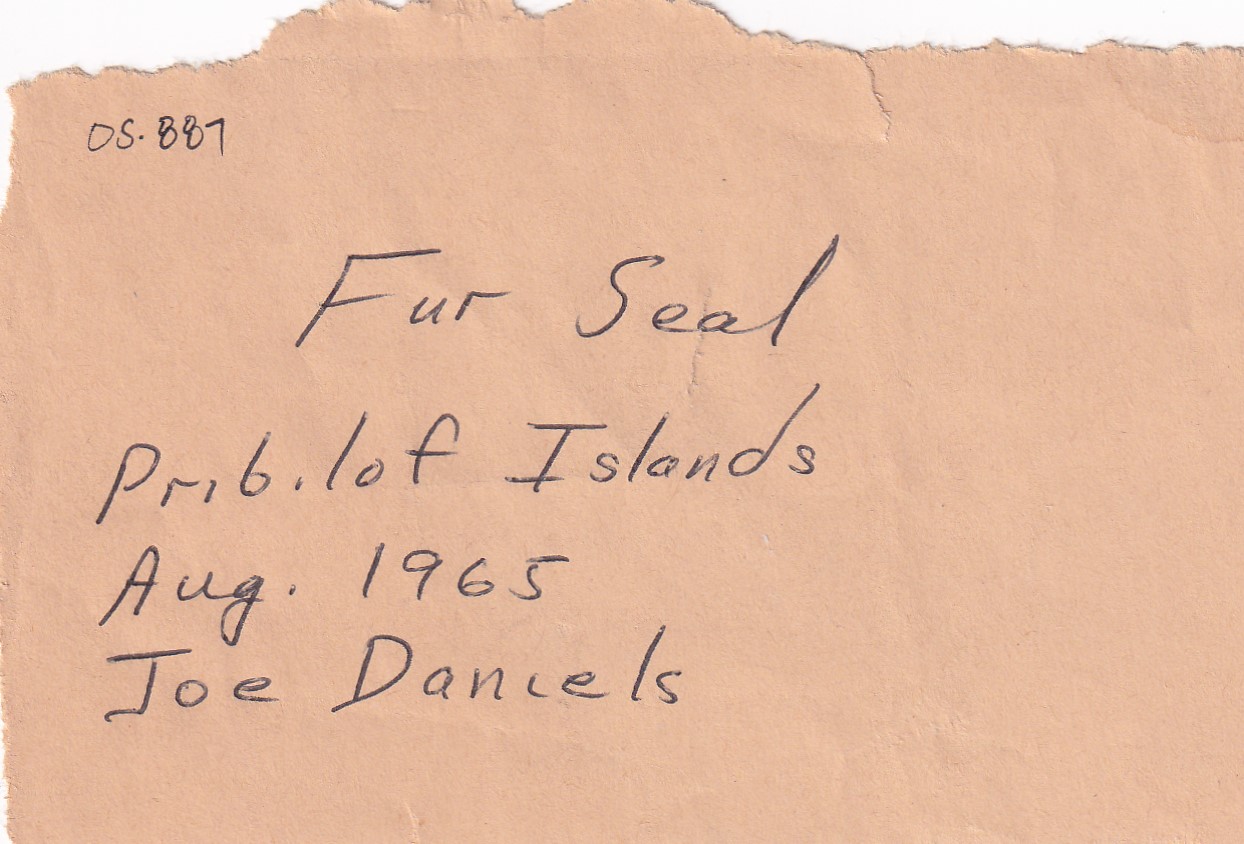 OS.887
Fur Seal
Pribilof Islands
Aug. 1965
Joe Daniels